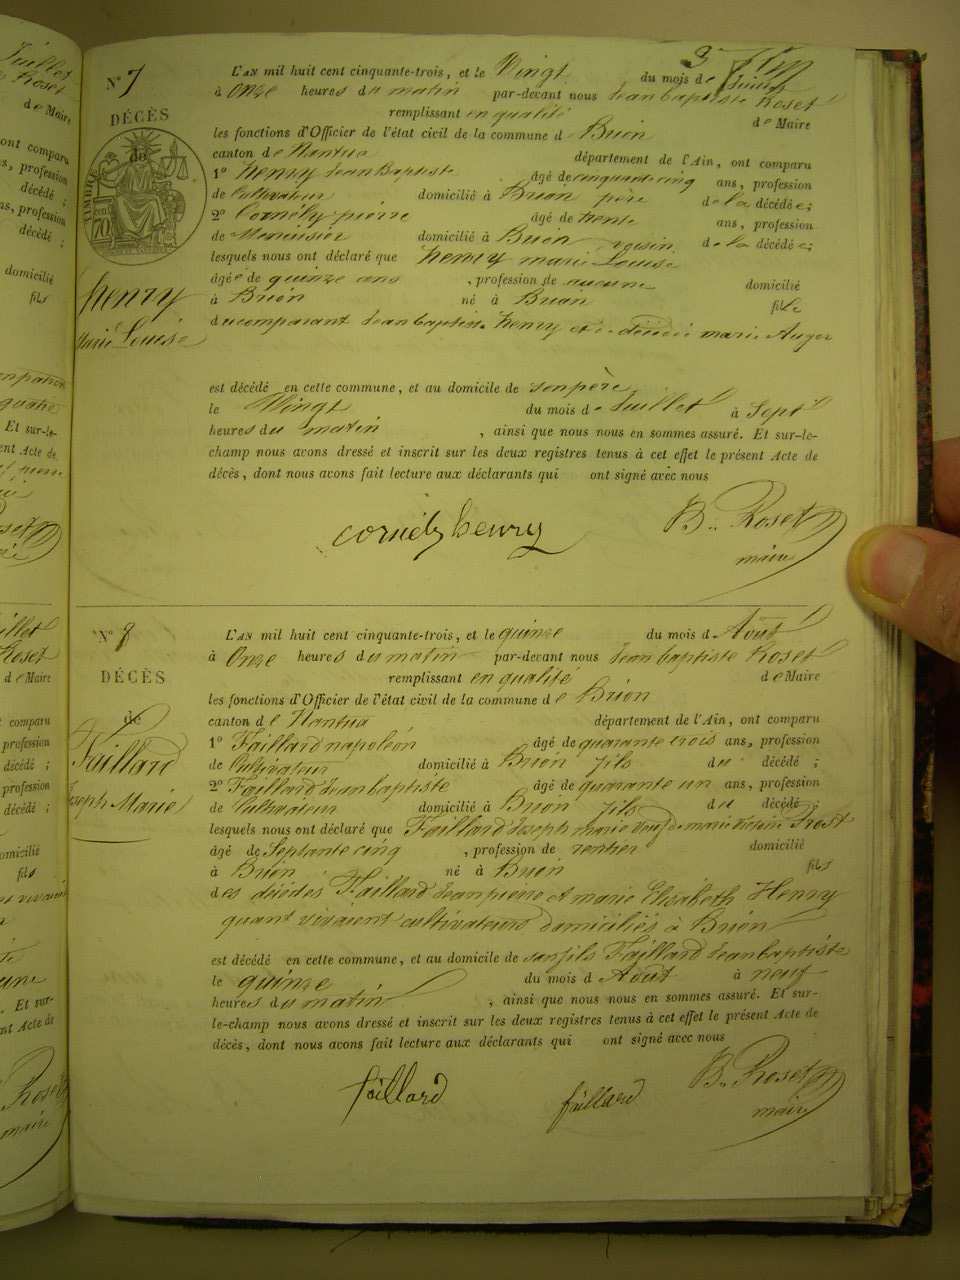 N° 7
DÉCÈS
de
TIMBRE
henry
Marie Louise
L'AN mil huit cent cinquante-trois, et le Vingt du mois de Juillet
à Onze heures du matin par-devant nous Jean baptiste Roset
remplissant en qualité de Maire
les fonctions d'Officier de l'état civil de la commune de Brion
canton de Nantua département de l'Ain, ont comparu
1° henry Jean Baptiste âgé de cinquante cinq ans, profession
de Cultivateur domicilié à Brion père de la décédée;
2° Cornély pierre âgé de trente ans, profession
de Menuisier domicilié à Brion voisin de la décédée;
lesquels nous ont déclaré que henry marie Louise
âgée de quinze ans , profession de aucune domicilié
à Brion né à Brion fille
du comparant Jean baptiste henry et de décédée marie Auger
est décédé en cette commune, et au domicile de son père
le Vingt du mois de Juillet à Sept
heures du matin , ainsi que nous nous en sommes assuré. Et sur-le-
champ nous avons dressé et inscrit sur les deux registres tenus à cet effet le présent Acte de
décès, dont nous avons fait lecture aux déclarants qui ont signé avec nous
cornély henry B. Roset
maire
N° 8
DÉCÈS
de
Faillard
Joseph Marie
L'AN mil huit cent cinquante-trois, et le quinze du mois d'Août
à Onze heures du matin par-devant nous Jean baptiste Roset
remplissant en qualité de Maire
les fonctions d'Officier de l'état civil de la commune de Brion
canton de Nantua département de l'Ain, ont comparu
1° Faillard napoléon âgé de quarante trois ans, profession
de Cultivateur domicilié à Brion fils du décédé ;
2° Faillard Jean baptiste âgé de quarante un ans, profession
de Cultivateur domicilié à Brion fils du décédé ;
lesquels nous ont déclaré que Faillard Joseph marie veuf de marie Prost
âgé de Septante cinq , profession de rentier domicilié
à Brion né à Brion fils
des décédés Faillard Jean pierre et marie Elisabeth Henry
quant vivaient cultivateurs domiciliés à Brion
est décédé en cette commune, et au domicile de son fils Faillard Jean baptiste
le quinze du mois d'Août à neuf
heures du matin , ainsi que nous nous en sommes assuré. Et sur-
le-champ nous avons dressé et inscrit sur les deux registres tenus à cet effet le présent Acte de
décès, dont nous avons fait lecture aux déclarants qui ont signé avec nous
faillard faillard B. Roset
maire